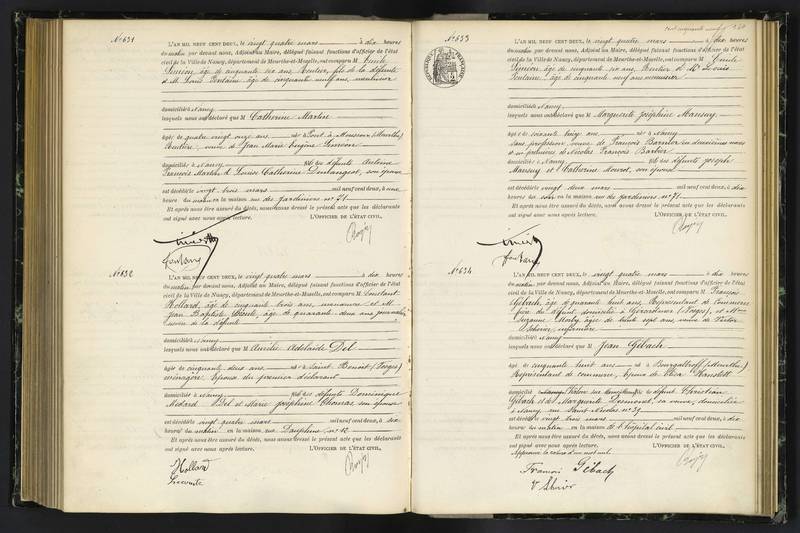 N° 631
L'AN MIL NEUF CENT DEUX, le vingt quatre mars à dix heures
du matin par devant nous, Adjoint au Maire, délégué faisant fonctions d'officier de l'état
civil de la Ville de Nancy, département de Meurthe-et-Moselle, ont comparu M. Emile
Simeon, âgé de cinquante six ans, Rentier, fils de la défunte
et M. Louis Fontaine, âgé de cinquante neuf ans,
domiciliés à Nancy
lesquels nous ont déclaré que M Catherine Martin
âgée de quatre vingt onze ans né à Pont à Mousson (Meurthe)
Rentière, veuve de Jean Marie Simeon
domiciliée à Nancy fille des défunts Antoine
François Martin et Louise Catherine son épouse
est décédée vingt trois mars mil neuf cent deux, à onze
heures du en la maison rue des Jardiniers n° 71
Et après nous être assuré du décès, nous avons dressé le présent acte que les déclarants
ont signé avec nous après lecture. L'OFFICIER DE L'ÉTAT CIVIL,
N° 632
L'AN MIL NEUF CENT DEUX, le vingt quatre mars à dix heures
du matin par devant nous, Adjoint au Maire, délégué faisant fonctions d'officier de l'état
civil de la Ville de Nancy, département de Meurthe-et-Moselle, ont comparu M. Constant
Hollard, âgé de cinquante trois ans, manœuvre et M.
Jean Baptiste âgé de quarante deux ans journalier
de la défunte
domiciliés à Nancy
lesquels nous ont déclaré que M Amélie Adelaïde Del
âgée de cinquante deux ans né à Saint Benoit (Vosges)
ménagère, épouse du premier déclarant
domiciliée à Nancy fille des défunts Dominique
Medard Del et Marie Josephine Thomas, son épouse
est décédée vingt quatre mars mil neuf cent deux, à six
heures du matin en la maison rue Dauphine, n° 12
Et après nous être assuré du décès, nous avons dressé le présent acte que les déclarants
ont signé avec nous après lecture. L'OFFICIER DE L'ÉTAT CIVIL,
Hollard
N° 633
RÉPUBLIQUE FRANÇAISE
L'AN MIL NEUF CENT DEUX, le vingt quatre mars à dix heures
du matin par devant nous, Adjoint au Maire, délégué faisant fonctions d'officier de l'état
civil de la Ville de Nancy, département de Meurthe-et-Moselle, ont comparu M. Emile
Simeon, âgé de cinquante six ans, Rentier et M. Louis
Fontaine, âgé de cinquante neuf ans
domiciliés à Nancy
lesquels nous ont déclaré que M Marguerite Joséphine Mansuy
âgée de soixante treize ans née à Nancy
sans profession, veuve de François Barnier en deuxièmes noces
et en premières de Nicolas François Barbier
domiciliée à Nancy fille des défunts Joseph
Mansuy et Catherine son épouse
est décédée vingt deux mars mil neuf cent deux, à dix
heures du soir en la maison rue des Jardiniers n° 71
Et après nous être assuré du décès, nous avons dressé le présent acte que les déclarants
ont signé avec nous après lecture. L'OFFICIER DE L'ÉTAT CIVIL,
N° 634
L'AN MIL NEUF CENT DEUX, le vingt quatre mars à dix heures
du matin par devant nous, Adjoint au Maire, délégué faisant fonctions d'officier de l'état
civil de la Ville de Nancy, département de Meurthe-et-Moselle, ont comparu M. François
Gibach, âgé de quarante huit ans, Représentant de Commerce
frère du défunt, domicilié à Gérardmer (Vosges), et Mme
Suzanne âgée de trente sept ans, veuve de Victor
infirmière
domiciliée à Nancy
lesquels nous ont déclaré que M Jean Gibach
âgé de cinquante huit ans né à (Meurthe)
Représentant de commerce, époux de
domicilié fils de défunt Christian
Gibach et de Marguerite sa veuve, domiciliée
à Nancy rue Saint Nicolas n° 39
est décédé vingt trois mars mil neuf cent deux, à dix
heures du matin en la maison de l'hôpital civil
Et après nous être assuré du décès, nous avons dressé le présent acte que les déclarants
ont signé avec nous après lecture. L'OFFICIER DE L'ÉTAT CIVIL,
Approuvé la rature d'un mot nul
François Gibach